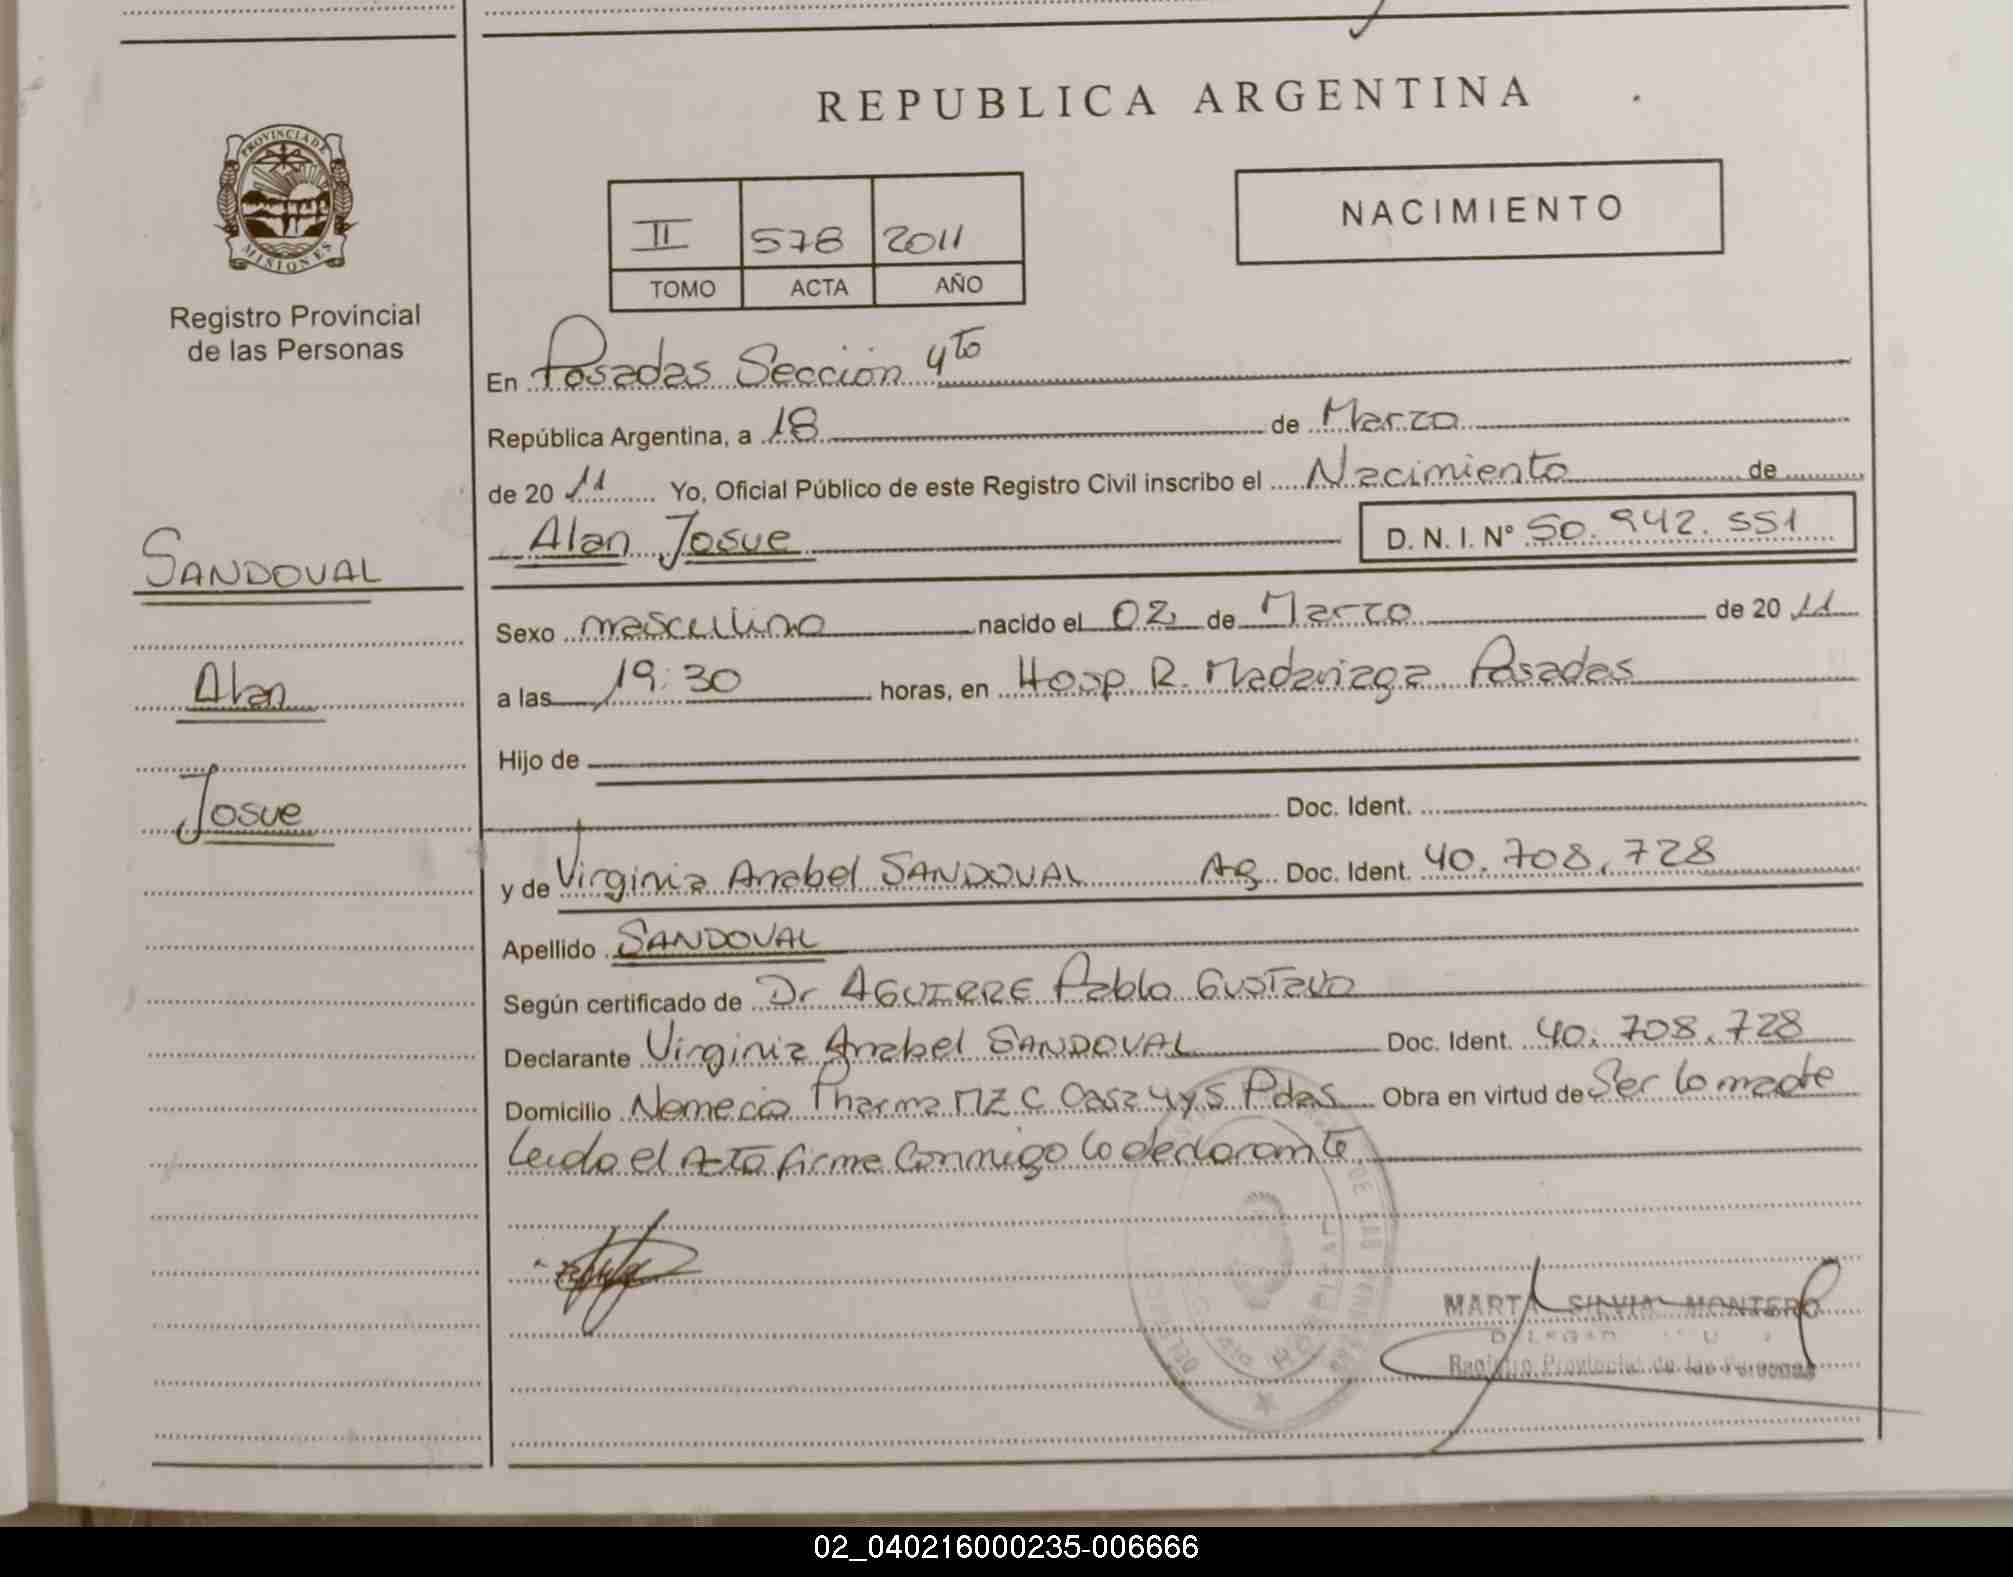 REPUBLICA ARGENTINA
PROVINCIA DE
MISIONES
Registro Provincial
de las Personas
II 578 2011
TOMO ACTA AÑO
NACIMIENTO
En Posadas Sección 4to
República Argentina, a 18 de Marzo
de 2011 Yo, Oficial Público de este Registro Civil inscribo el Nacimiento de
Alan Josue D. N. I. Nº 50.942.551
SANDOVAL
Alan
Josue
Sexo masculino nacido el 02 de Marzo de 2011
a las 19:30 horas, en Hosp R. Madariaga Posadas
Hijo de
Doc. Ident.
y de Virginia Anabel SANDOVAL Ag Doc. Ident. 40.708.728
Apellido SANDOVAL
Según certificado de Dr AGUIRRE Pablo Gustavo
Declarante Virginia Anabel SANDOVAL Doc. Ident. 40.708.728
Domicilio Nemecio Pharma MZ C Casa 4y5 Pdas Obra en virtud de Ser la madre
Leida el Acta firma conmigo la declarante
MARTA SILVIA MONTERO
Registro Provincial de las Personas
02_040216000235-006666